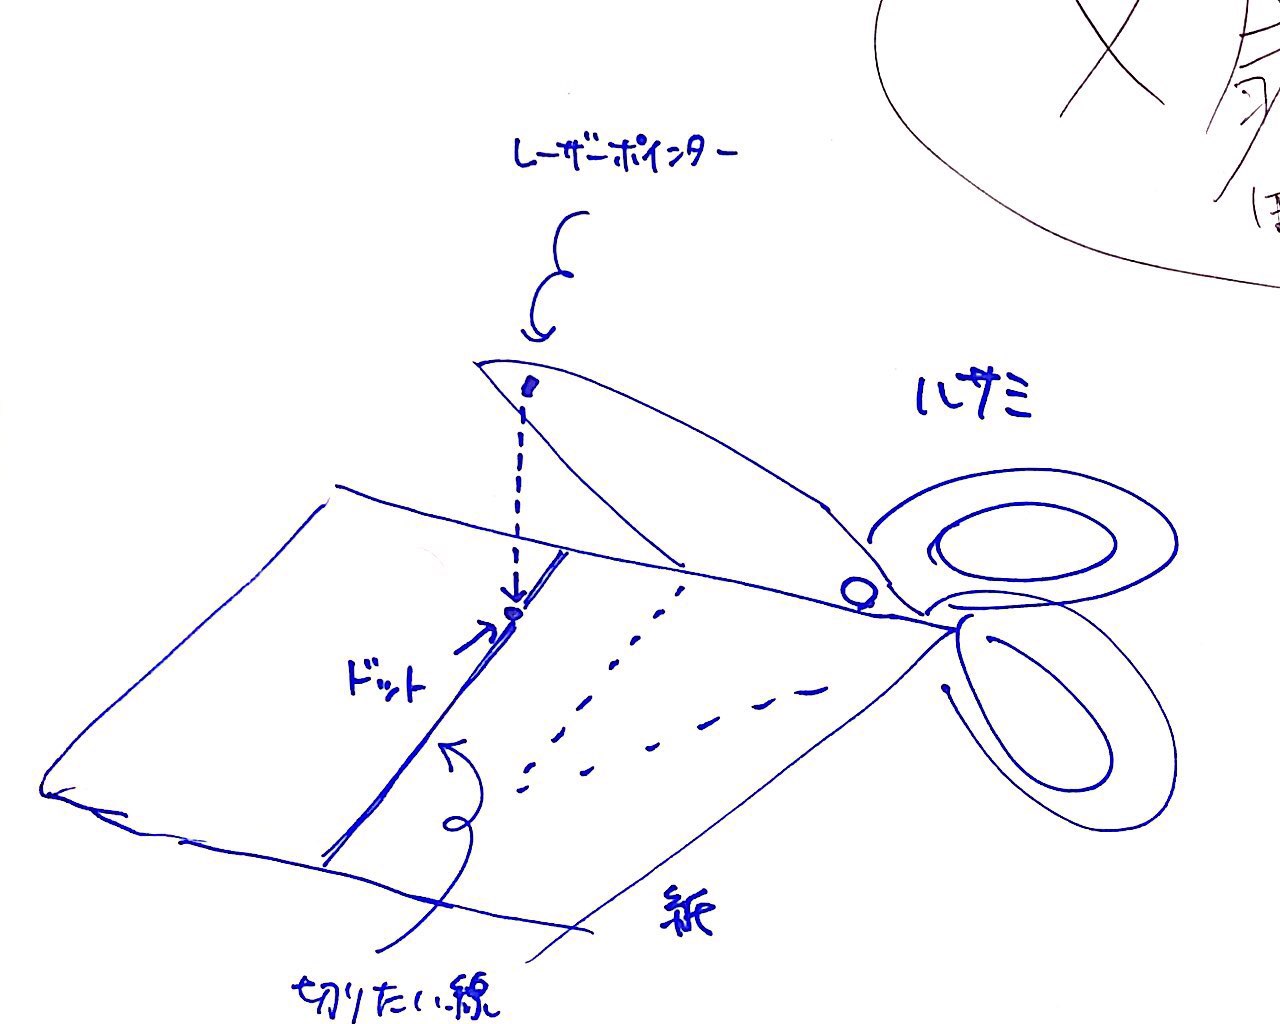 レーザーポインター
ハサミ
ドット
紙
切りたい線